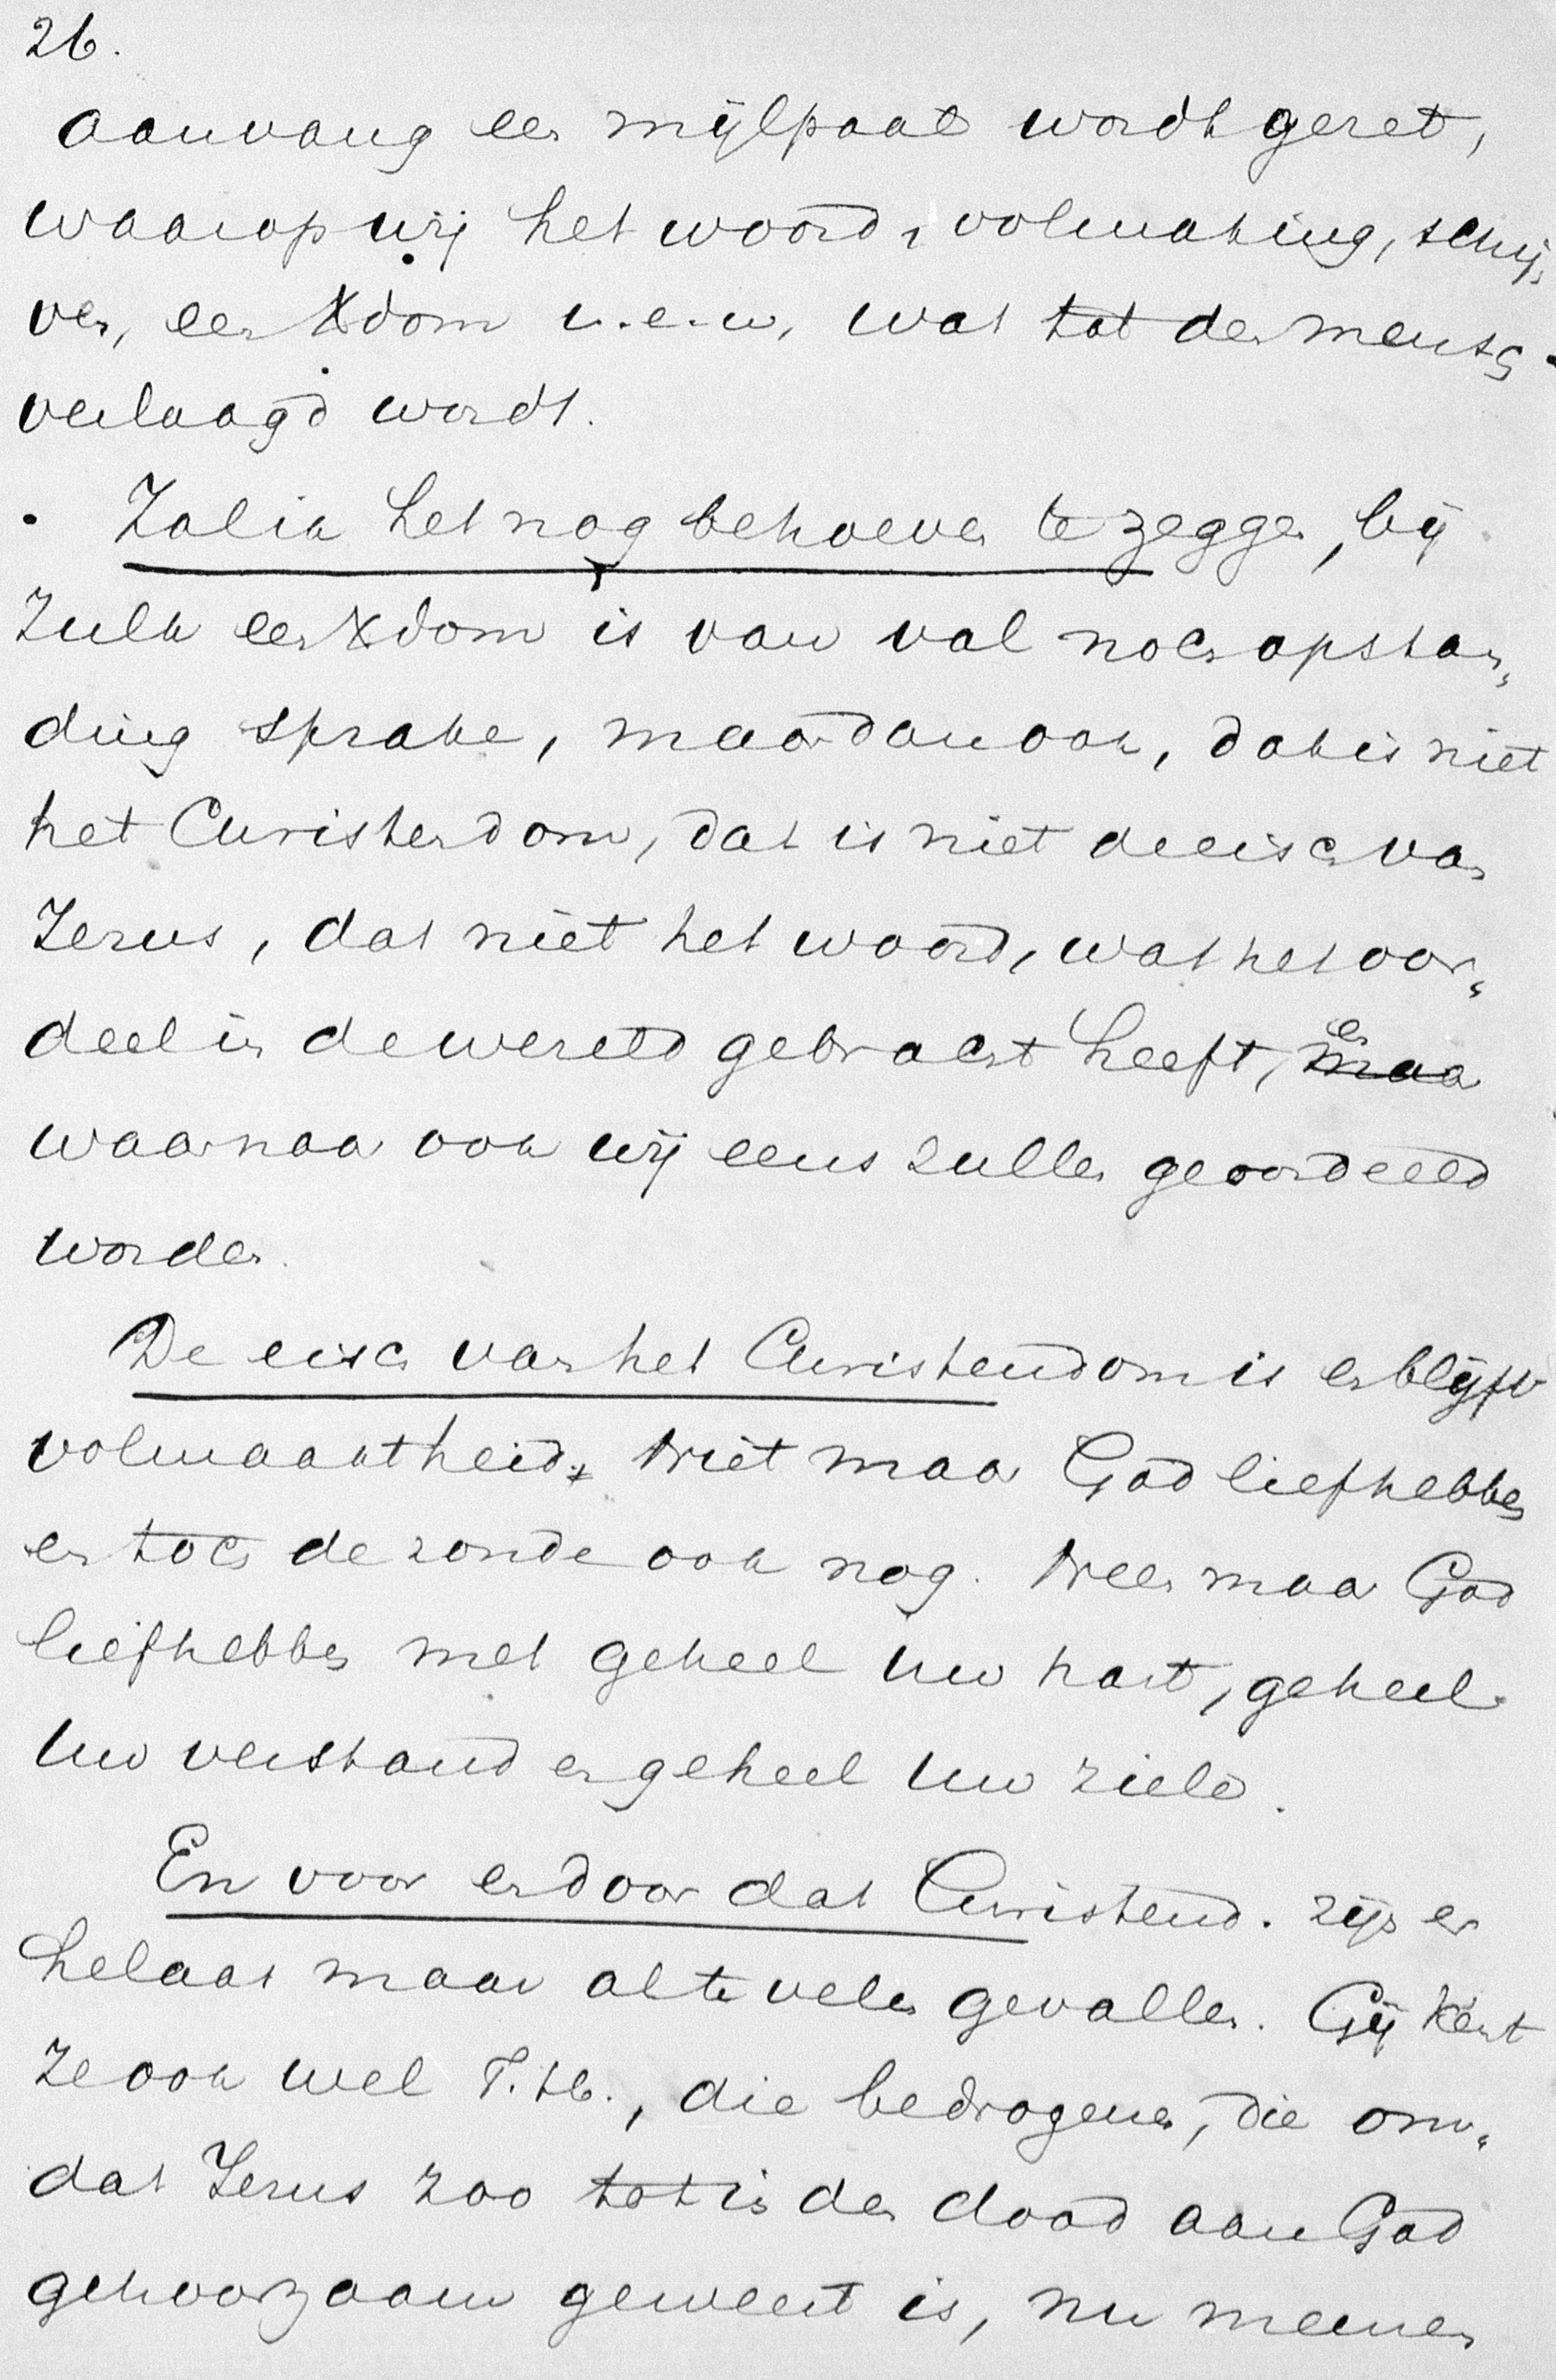 26.
aanvang een mijlpaal wordt gezet,
waarop wij het woord, volmaking, schrij„
ven, een Xdom n.e.w, wat tot den mensch
verlaagd wordt.
Zal ik het nog behoeven te zeggen, bij
zulk een Xdom is van val noch opstan„
ding sprake, maar dan ook, dat is niet
het Christendom, dat is niet de eisch van
Jezus, dat niet het woord, wat het oor„
deel in de wereld gebracht heeft, en maa
waarnaar ook wij eens zullen geoordeeld
worden.
De eisch van het Christendom is en blijft
volmaaktheid. Niet maar God liefhebben
en toch de zonde ook nog. Neen maar God
liefhebben met geheel Uw hart, geheel
Uw verstand en geheel Uw ziele.
En voor en door dat Christend. zijn er
helaas maar al te velen gevallen. Gij kent
ze ook wel T.H., die bedrogenen, die om„
dat Jezus zoo tot in den dood aan God
gehoorzaam geweest is, nu meenen